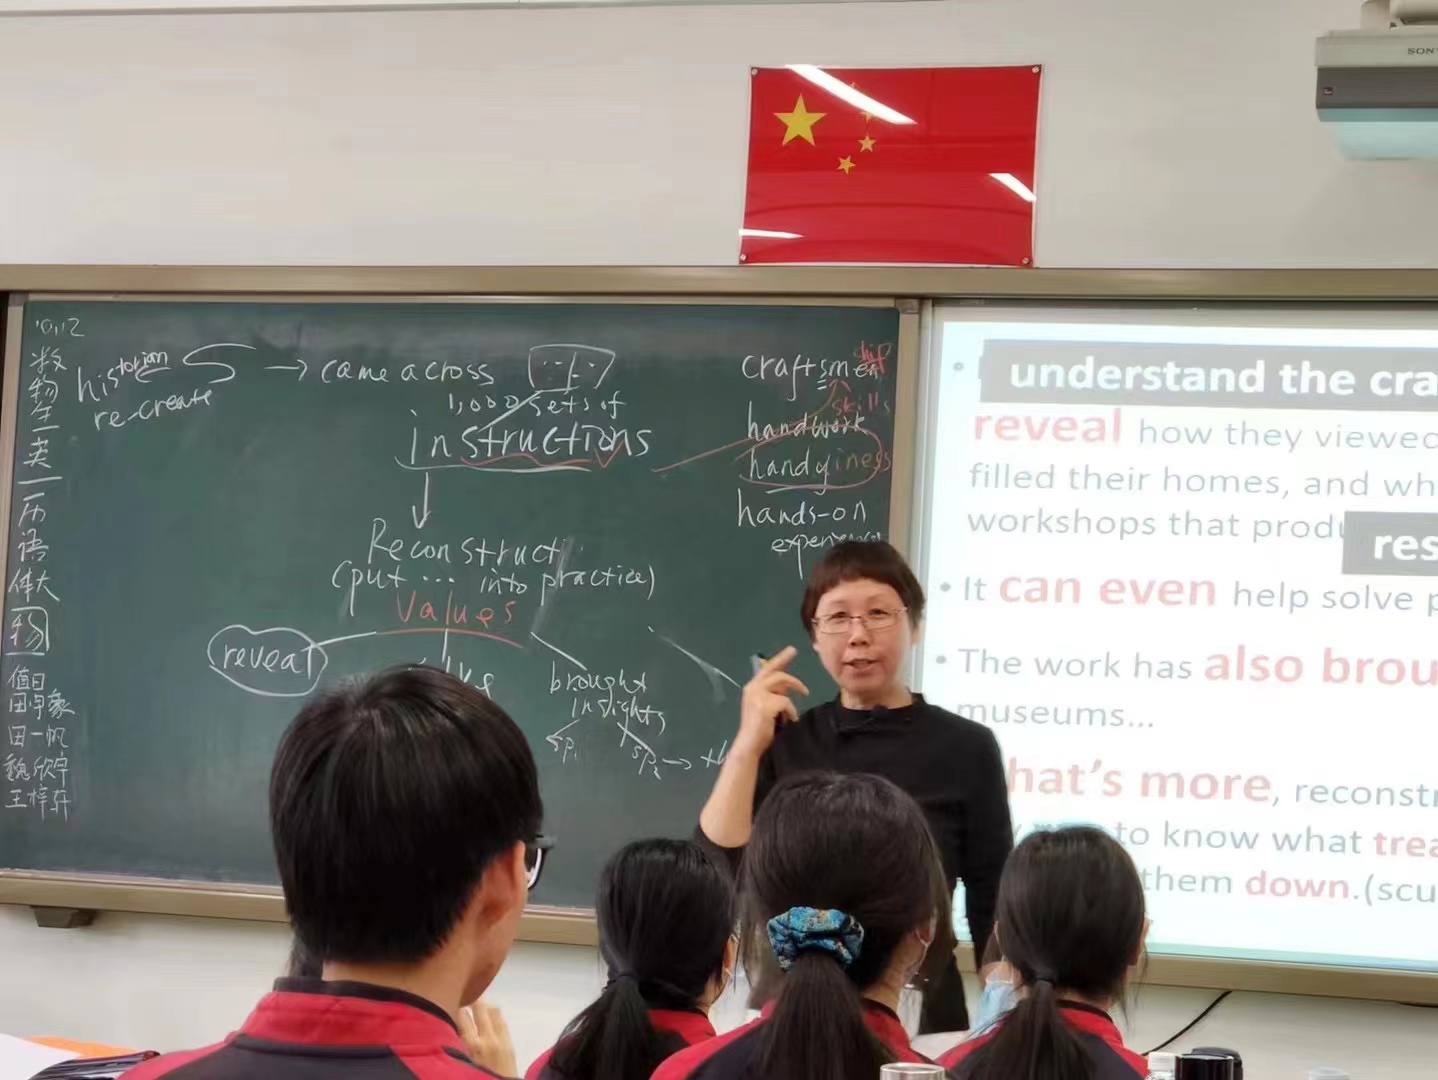 SONY
10.12
数
物
生
英
一
历
语
体大
物
值日
田一帆
魏欣宇
王梓轩
historian
re-create
→ came across
1,000 sets of
instructions
Reconstruct
(put ... into practice)
Values
reveal
brought
insights
sp1
sp2 →
craftsmen
ship
skills
handwork
handyiness
hands-on
experience
understand the cra
reveal how they viewed
filled their homes, and wh
workshops that produ
res
• It can even help solve p
• The work has also brou
museums...
hat's more, reconstr
to know what trea
them down.(scu